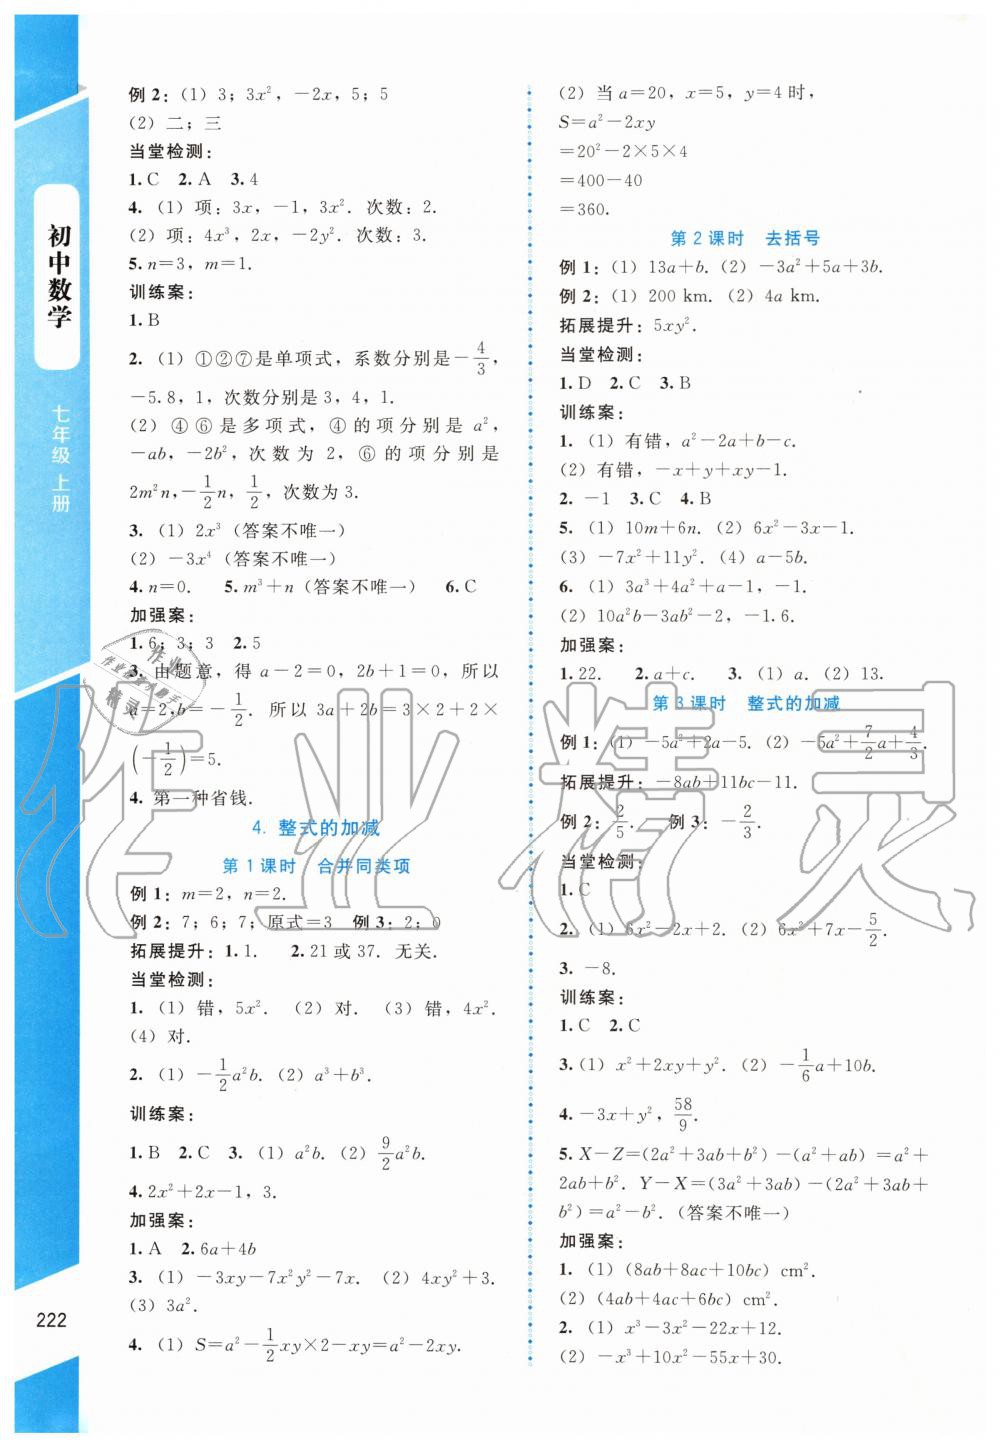 初中数学
七年级 上册
222
例 2：（1）3；3x²，－2x，5；5
（2）二；三
当堂检测：
1. C　2. A　3. 4
4.（1）项：3x，－1，3x²．次数：2．
（2）项：4x³，2x，－2y²．次数：3．
5. n＝3，m＝1．
训练案：
1. B
2.（1）①②⑦是单项式，系数分别是－4/3，
－5.8，1，次数分别是 3，4，1．
（2）④⑥是多项式，④的项分别是 a²，
－ab，－2b²，次数为 2，⑥的项分别是
2m²n，－1/2n，1/2，次数为 3．
3.（1）2x³（答案不唯一）
（2）－3x⁴（答案不唯一）
4. n＝0．　5. m³＋n（答案不唯一）　6. C
加强案：
1. 6；3；3　2. 5
3. 由题意，得 a－2＝0，2b＋1＝0，所以
a＝2，b＝－1/2．所以 3a＋2b＝3×2＋2×
(－1/2)＝5．
4. 第一种省钱．
4. 整式的加减
第 1 课时　合并同类项
例 1：m＝2，n＝2．
例 2：7；6；7；原式＝3　例 3：2；0
拓展提升：1. 1．　2. 21 或 37．无关．
当堂检测：
1.（1）错，5x²．（2）对．（3）错，4x²．
（4）对．
2.（1）－1/2a²b．（2）a³＋b³．
训练案：
1. B　2. C　3.（1）a²b．（2）9/2a²b．
4. 2x²＋2x－1，3．
加强案：
1. A　2. 6a＋4b
3.（1）－3xy－7x²y²－7x．（2）4xy²＋3．
（3）3a²．
4.（1）S＝a²－1/2xy×2－xy＝a²－2xy．
（2）当 a＝20，x＝5，y＝4 时，
S＝a²－2xy
＝20²－2×5×4
＝400－40
＝360．
第 2 课时　去括号
例 1：（1）13a＋b．（2）－3a²＋5a＋3b．
例 2：（1）200 km．（2）4a km．
拓展提升：5xy²．
当堂检测：
1. D　2. C　3. B
训练案：
1.（1）有错，a²－2a＋b－c．
（2）有错，－x＋y＋xy－1．
2. －1　3. C　4. B
5.（1）10m＋6n．（2）6x²－3x－1．
（3）－7x²＋11y²．（4）a－5b．
6.（1）3a³＋4a²＋a－1，－1．
（2）10a²b－3ab²－2，－1.6．
加强案：
1. 22．　2. a＋c．　3.（1）a．（2）13．
第 3 课时　整式的加减
例 1：（1）－5a²＋2a－5．（2）－5a²＋7/2a＋4/3．
拓展提升：－8ab＋11bc－11．
例 2：2/5．　例 3：－2/3．
当堂检测：
1. C
2.（1）6x²－2x＋2．（2）6x³＋7x－5/2．
3. －8．
训练案：
1. C　2. C
3.（1）x²＋2xy＋y²．（2）－1/6a＋10b．
4. －3x＋y²，58/9．
5. X－Z＝(2a²＋3ab＋b²)－(a²＋ab)＝a²＋
2ab＋b²．Y－X＝(3a²＋3ab)－(2a²＋3ab＋
b²)＝a²－b²．（答案不唯一）
加强案：
1.（1）(8ab＋8ac＋10bc) cm²．
（2）(4ab＋4ac＋6bc) cm²．
2.（1）x³－3x²－22x＋12．
（2）－x³＋10x²－55x＋30．
作业精灵